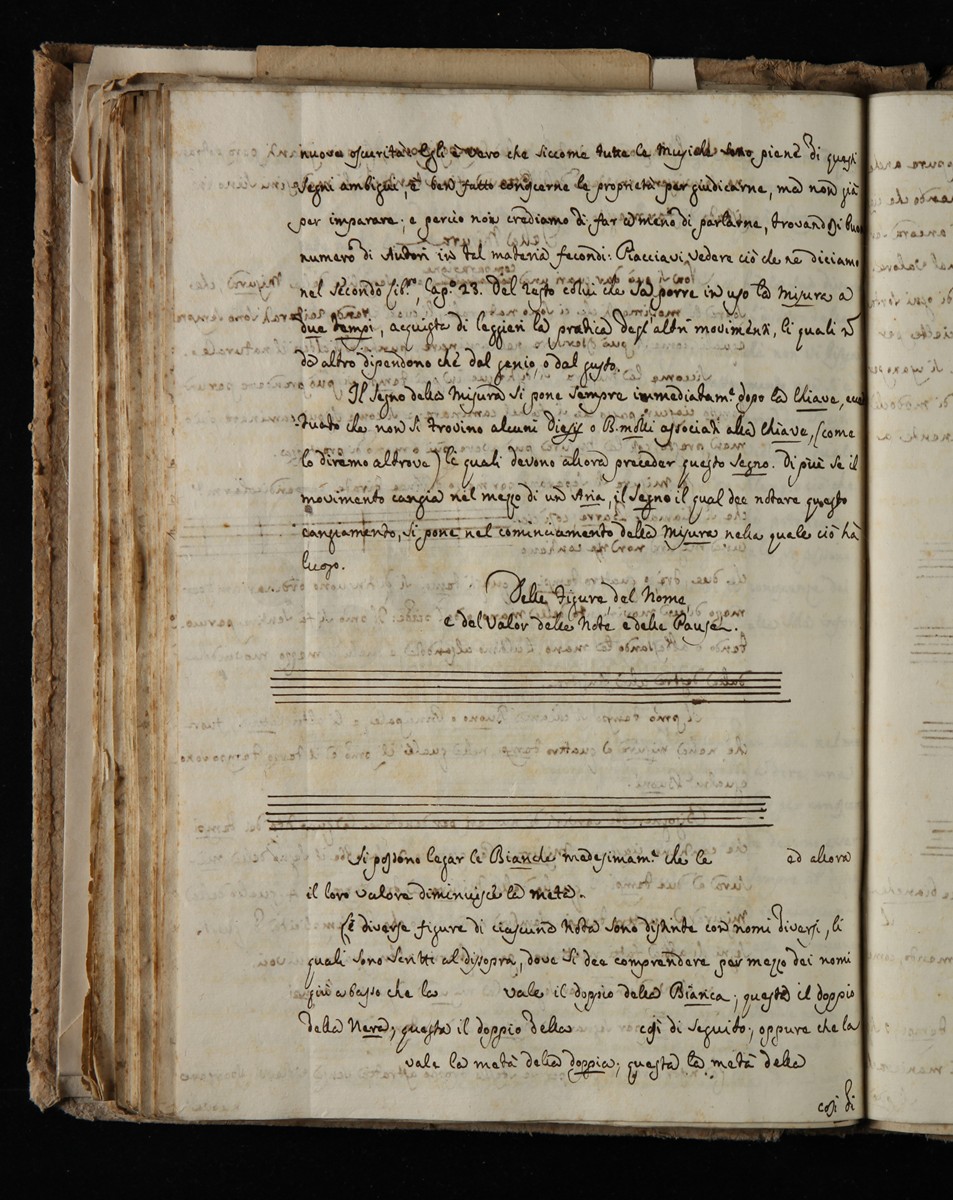 nuova oscurità. Egli è vero che siccome tutte le Musiche sono piene di questi
segni ambigui, è ben fatto conoscerne le proprietà per giudicarne, ma non già
per imparare; e perciò non crediamo di far a meno di parlarne, trovandosi buon
numero di Autori in tal materia fecondi: Piacciavi vedere ciò che ne diciamo
nel Secondo Lib.º, Cap.º 23. Del resto colui che sa porre in uso la Misura a
due tempi, acquista di leggieri la pratica degl'altri movimenti, li quali
da altro dipendono che dal genio, o dal gusto.
Il Segno della Misura si pone sempre immediatam.e dopo la Chiave,
tuato che non si trovino alcuni diesy o B.molli associati alla Chiave, (come
lo diremo altrove) le quali devono allora preceder questo Segno. Di più se il
movimento cangia nel mezzo di un Aria, il Segno il qual dee notare questo
cangiamento, si pone nel cominciamento della Misura nella quale ciò hà
luogo.
Delle Figure, del Nome,
e del Valor delle Note e delle Pause.
Si possono legar le Bianche medesimam.e che le ed allora
il loro valore diminuisce la metà.
Le diverse figure di ciascuna Nota sono distinte con nomi diversi, li
quali sono scritti al dissopra, dove si dee comprendere per mezzo dei nomi
più a basso che la vale il doppio della Bianca; questa il doppio
della Nera; questa il doppio della così di seguito; oppure che la
vale la metà della doppia; questa la metà della
così di